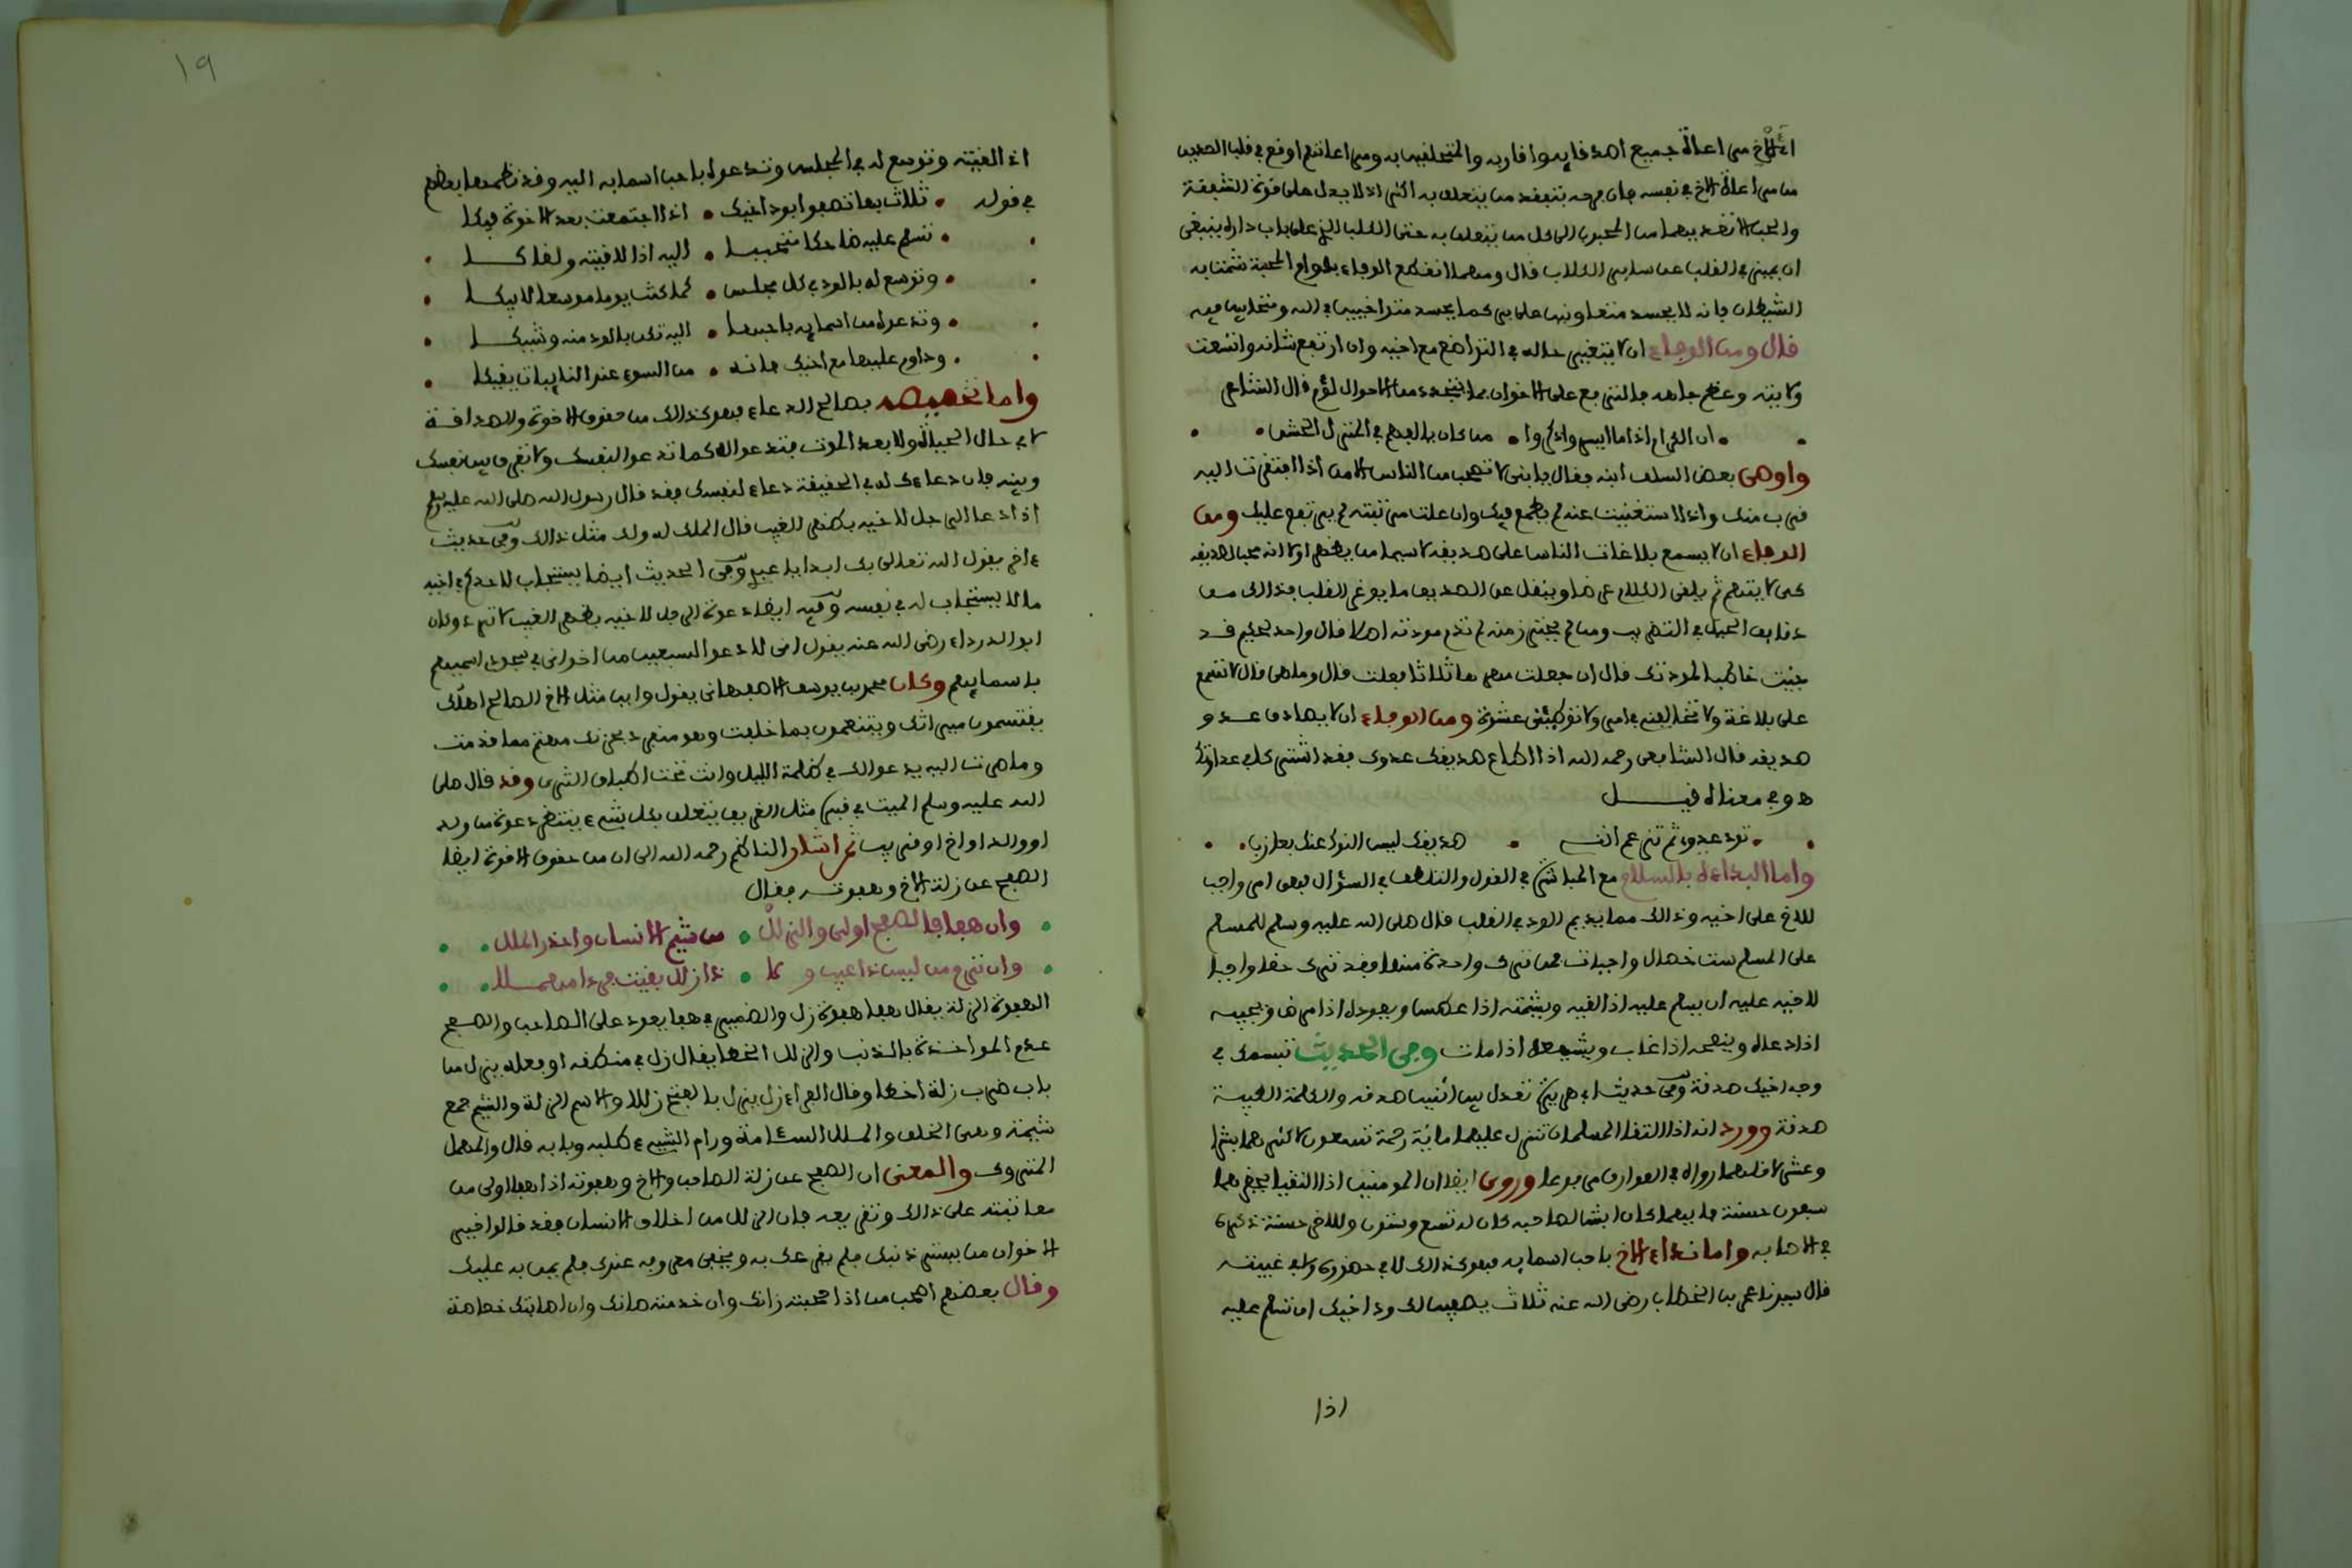 الأخ من اعاة جميع اصدقايه واقاربه والمتعلقين به ومراعاتهم اوقع في قلب الصديق
من مراعاة الاخ في نفسه فان فرحه بتفقد من يتعلق به اكثر اذ لا يدل على قوة الشفقة
والحب الا تعديهما من المحبوب الى كل من يتعلق به حتى الكلب الذي على باب داره ينبغي
ان يميز في القلب عن ساير الكلاب قال ومهما انقطع الوفاء بدوام المحبة شمت به
الشيطان فانه لا يحسد متعاونين على بر كما يحسد متواخيين في الله ومتحابين فيه
قال ومن الوفاء ان لا يتغير حاله في التواضع مع اخيه وان ارتفع شانه واتسعت
ولايته وعظم جاهه فالترفع على الاخوان بما يتجدد من الاحوال لؤم قال الشاعر
ان الكرام اذا ما ايسروا ذكروا • من كان يالفهم في المنزل الخشن
واوصى بعض السلف ابنه فقال يا بني لا تصحب من الناس الا من اذا افتقرت اليه
قرب منك واذا استغنيت عنه لم يطمع فيك وان علت مرتبته لم يرتفع عليك ومن
الوفاء ان لا يسمع بلاغات الناس على صديقه لا سيما من يظهر اولا انه محب لصديقه
كي لا يتهم ثم يلقي الكلام عرضا وينقل عن الصديق ما يوغر القلب فذالك من
دقايق الحيل في التضريب ومن لم يحترز منه لم تدم مودته اصلا قال واحد لحكيم قد
جيت خاطبا لمودتك قال ان جعلت مهرها ثلاثا فعلت قال وما هي قال لا تسمع
علي بلاغة ولا تخالفني في امر ولا توطئني عشوة ومن الوفاء ان لا يصادق عدو
صديقه قال الشافعي رحمه الله اذا اطاع صديقك عدوك فقد اشتركا في عداوتك
هو في معناه قيل
تود عدوي ثم تزعم انني • صديقك ليس النوك عنك بعازب
واما البداءة بالسلام مع المباشرة في القول والتلطف في السؤال فهي امر واجب
للاخ على اخيه وذالك مما يديم الود في القلب قال صلى الله عليه وسلم للمسلم
على المسلم ست خصال واجبات فمن ترك واحدة منها فقد ترك حقا واجبا
لاخيه عليه ان يسلم عليه اذا لقيه ويشمته اذا عطس ويعوده اذا مرض ويجيبه
اذا دعاه وينصحه اذا غاب ويشيعه اذا مات وفي الحديث تبسمك في
وجه اخيك صدقة وفي حديث ابي هريرة تعدل بين اثنين صدقة والكلمة الطيبة
صدقة وورد انه اذا التقا المسلمان تنزل عليهما مائة رحمة تسعون لاكثرهما بشرا
وعشر لاقلهما رواه في العوارف مرفوعا وروي ايضا ان المومنين اذا التقيا يغفر لهما
سبعون حسنة فايهما كان ابش لصاحبه كان له تسع وستون وللاخر حسنة ذكره
في الاصابة واما نداء الاخ باحب اسمايه فهو كذالك لا في حضوره ولا في غيبته
قال سيدنا عمر بن الخطاب رضي الله عنه ثلاث يصفين لك ود اخيك ان تسلم عليه
اذا
١٩
اذا لقيته وتوسع له في المجلس وتدعوه باحب اسمايه اليه وقد نظمها بعضهم
في قوله • ثلاث بها تصفوا بود اخيك • اذا اجتمعت بعد الاخوة فيكا
تسلم عليه ضاحكا متحببا • اليه اذا لاقيته ولقاكا
وتوسع له بالود في كل مجلس • كما كنت يوما موسعا لابيكا
وتدعوه من اسمايه باحبها • اليه تكن بالود منه وشيكا
وداوم عليها مع اخيك فانه • من السوء عند النايبات يقيكا
واما تخصيصه بصالح الدعاء فهو كذالك من حقوق الاخوة والصداقة
لا في حال الحياة ولا بعد الموت فتدعو له كما تدعو لنفسك ولا تفرق بين نفسك
وبينه فان دعاءك له في الحقيقة دعاء لنفسك فقد قال رسول الله صلى الله عليه وسلم
اذا دعا الرجل لاخيه بظهر الغيب قال الملك له ولك مثل ذالك وفي حديث
ءاخر يقول الله تعالى بك ابدا يا عبدي وفي الحديث ايضا يستجاب لاحدكم في اخيه
ما لا يستجاب له في نفسه وفيه ايضا دعوة الرجل لاخيه بظهر الغيب لا ترد وكان
ابو الدرداء رضي الله عنه يقول اني لادعو لسبعين من اخواني في سجودي اسميهم
باسمايهم وكان محمد بن يوسف الاصفهاني يقول واين مثل الاخ الصالح اهلك
يقتسمون ميراثك ويتنعمون بما خلفت وهو منفرد بحزنك مهتم بما قدمت
وما صرت اليه يدعو لك في ظلمة الليل وانت تحت اطباق الثرى وقد قال صلى
الله عليه وسلم الميت في قبره مثل الغريق يتعلق بكل شيء ينتظر دعوة من ولد
او والد او اخ او قريب ثم اشار الناظم رحمه الله الى ان من حقوق الاخوة ايضا
الصفح عن زلة الاخ وهفوته فقال
وان هفا فالصفح اولى والزلل • من شيم الانسان واحذر الملل
وان ترم من ليس ذا عيب ولا • ذا زلل بقيت فردا مهملا
الهفوة الزلة يقال هفا هفوة زل والضمير في هفا يعود على الصاحب والصفح
عدم المواخذة بالذنب والزلل الخطا يقال زل في منطقه او فعله يزل من
باب ضرب زلة اخطا وقال الفراء زل يزل بالفتح زللا والاسم الزلة والشيم جمع
شيمة وهي الخلق والملل السئامة ورام الشيء طلبه وبابه قال والمهمل
المتروك والمعنى ان الصفح عن زلة الصاحب والاخ وهفوته اذا هفا اولى من
معاتبته على ذالك وتقريعه فان الزلل من اخلاق الانسان فقد قالوا خير
الاخوان من يستر ذنبك فلم يقرعك به ويخفي معروفه عندك فلم يمن به عليك
وقال بعضهم اصحب من اذا صحبته زانك وان خدمته صانك وان اصابتك خصاصة